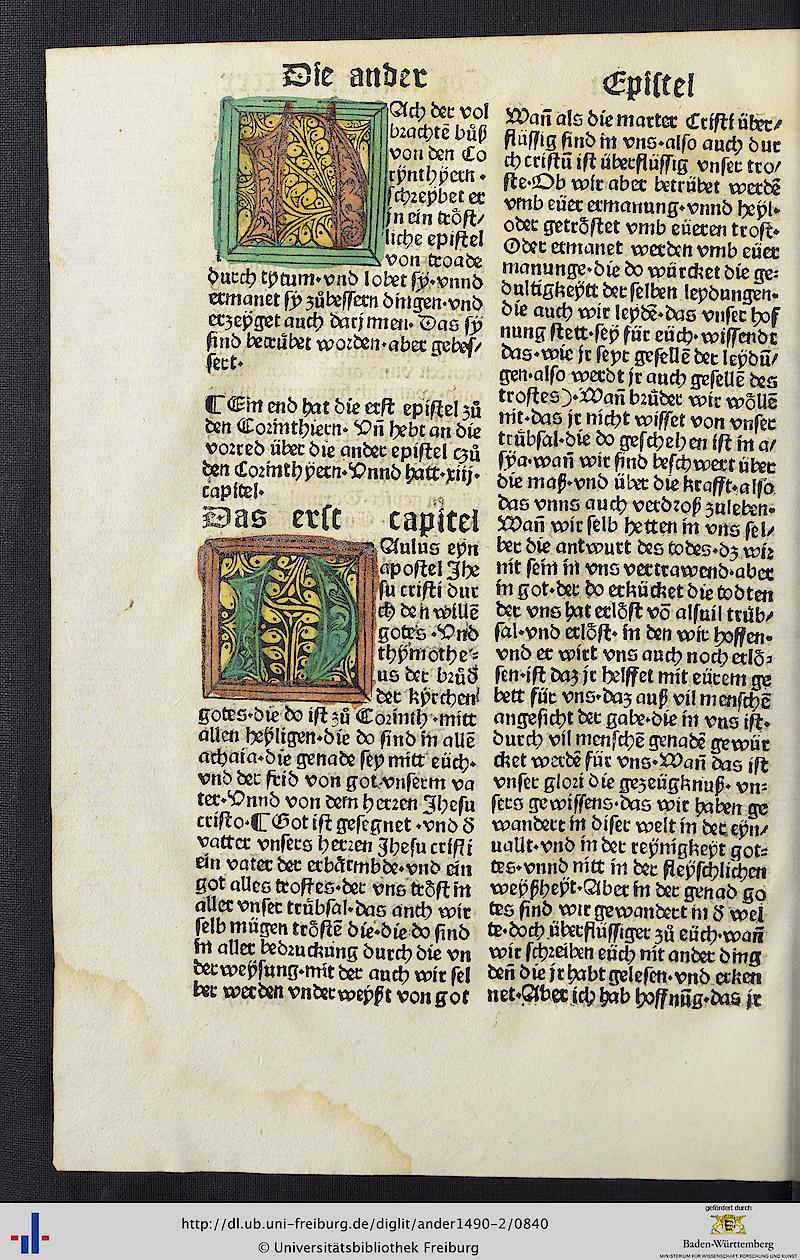 Die ander
Epistel
Ach der vol
brachtē bůß
von den Co
rÿnthÿern ·
schreÿbet er
jn ein trőst/
liche epistel
von troade
durch tÿtum·vnd lobet sÿ·vnnd
ermanet sÿ zůbessern dingen·vnd
erzeÿget auch darjnnen· Das sÿ
sind betrübet worden·aber gebes/
sert·
¶ Ein end hat die erst epistel zů
den Corinthiern· Vñ hebt an die
vorred über die ander epistel czů
den Corinthÿern·Vnnd hatt·xiij·
capitel·
Das erst capitel
Aulus eÿn
apostel Jhe
su cristi dur
ch den willē
gotes ·Vnd
thÿmothe⸗
us der brůď
der kÿrchen
gotes·die do ist zů Corinth ·mitt
allen heÿligen·die do sind in allē
achaia·die genade seÿ mitt eüch·
vnd der frid von got·vnserm va
ter·Vnnd von dem herren Jhesu
cristo·¶ Got ist gesegnet ·vnd ď
vatter vnsers herren Jhesu cristi
ein vater der erbärmbde·vnd ein
got alles trostes·der vns trőst in
aller vnser trübsal·das auch wir
selb mügen trőstē die·die do sind
in aller bedruckung durch die vn
derweÿsung·mit der auch wir sel
ber werden vnderweÿßt von got
Wañ als die marter Cristi über/
flüssig sind in vns·also auch dur
ch cristū ist überflüssig vnser tro/
ste·Ob wir aber betrübet werdē
vmb eüer ermanung·vnnd heÿl·
oder getrőstet vmb eüeren trost·
Oder ermanet werden vmb eüer
manunge·die do würcket die ge⸗
dultigkeÿtt der selben leydungen·
die auch wir leÿdē·das vnser hof
nung stett·seÿ für eüch·wissendt
das·wie jr seyt gesellē der leÿdū/
gen·also werdt jr auch gesellē des
trostes)·Wañ brüder wir wőllē
nit·das jr nicht wisset von vnser
trübsal·die do geschehen ist in a/
sÿa·wañ wir sind beschwert über
die maß·vnd über die krafft·also
das vnns auch verdroß zuleben·
Wañ wir selb hetten in vns sel/
ber die antwurt des todes·dz wir
nit sein in vns vertrawend·aber
in got·der do erkücket die todten
der vns hat erlőst vō alsuil trüb/
sal·vnd erlőst· in den wir hoffen·
vnd er wirt vns auch noch erlő⸗
sen·ist daz jr helffet mit eürem ge
bett für vns·daz auß vil menschē
angesicht der gabe·die in vns ist·
durch vil menschē genadē gewür
cket werdē für vns·Wañ das ist
vnser glori die gezeügknuß· vn⸗
sers gewissens·das wir haben ge
wandert in diser welt in der eÿn/
uallt·vnd in der reÿnigkeÿt got⸗
tes·vnnd nitt in der fleÿschlichen
weÿßheÿt·Aber in der genad go
tes sind wir gewandert in ď wel
te·doch überflüssiger zů eüch·wañ
wir schreiben eüch nit ander ding
deñ die jr habt gelesen·vnd erken
net·Aber ich hab hoffnūg·das jr
http://dl.ub.uni-freiburg.de/diglit/ander1490-2/0840
© Universitätsbibliothek Freiburg
gefördert durch
Baden-Württemberg
MINISTERIUM FÜR WISSENSCHAFT, FORSCHUNG UND KUNST